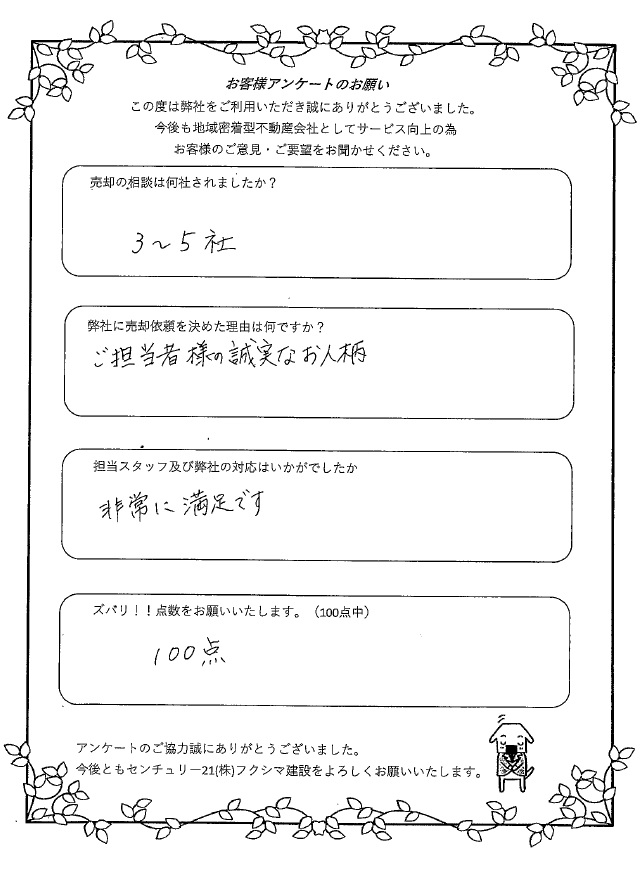 お客様アンケートのお願い
この度は弊社をご利用いただき誠にありがとうございました。
今後も地域密着型不動産会社としてサービス向上の為
お客様のご意見・ご要望をお聞かせください。
売却の相談は何社されましたか？
3～5社
弊社に売却依頼を決めた理由は何ですか？
ご担当者様の誠実なお人柄
担当スタッフ及び弊社の対応はいかがでしたか
非常に満足です
ズバリ！！点数をお願いいたします。（100点中）
100点
アンケートのご協力誠にありがとうございました。
今後ともセンチュリー21(株)フクシマ建設をよろしくお願いいたします。